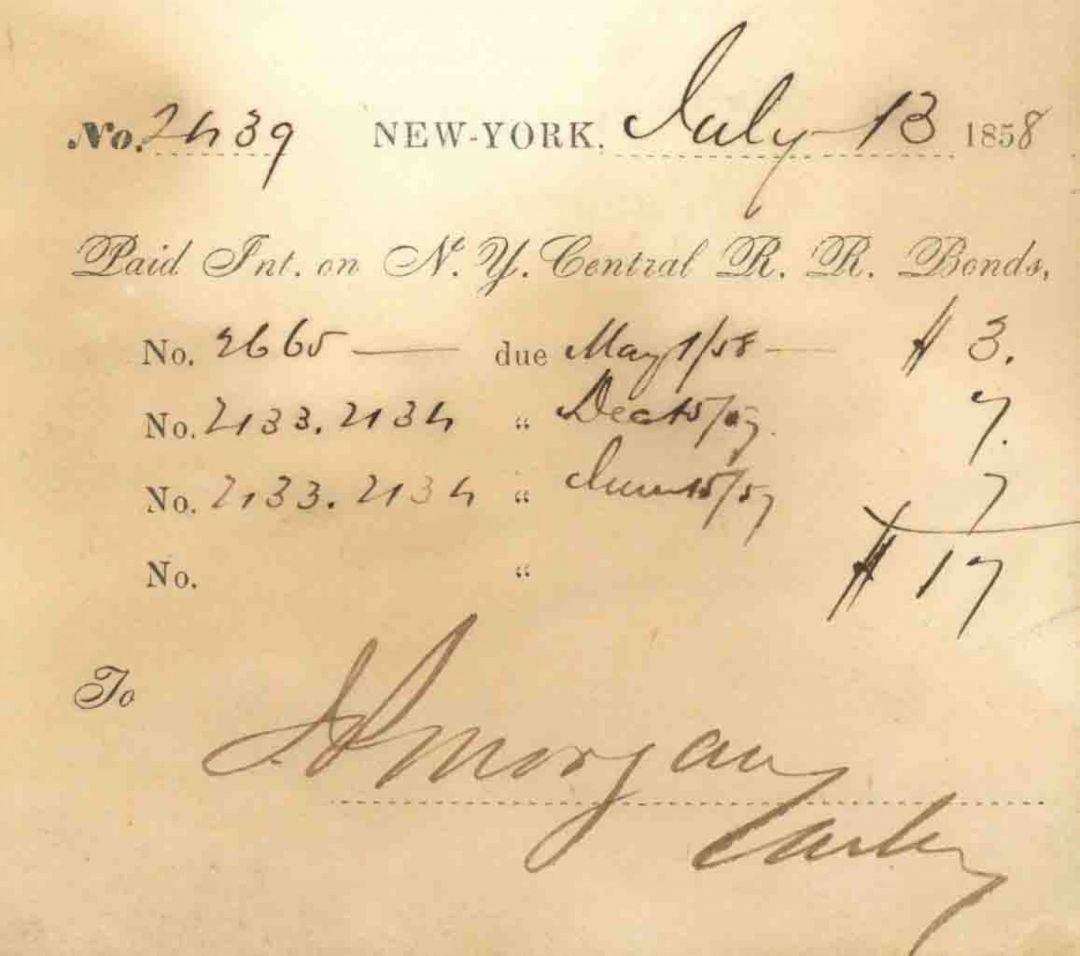 No. 2439 NEW-YORK. July 13 1858
Paid Int. on N. Y. Central R. R. Bonds,
No. 2665 — due May 1/58 — $ 3.
No. 2133. 2134 “ Dec 15/57. 7.
No. 2133. 2134 “ June 15/57 7
No. “ $ 17
To J P Morgan